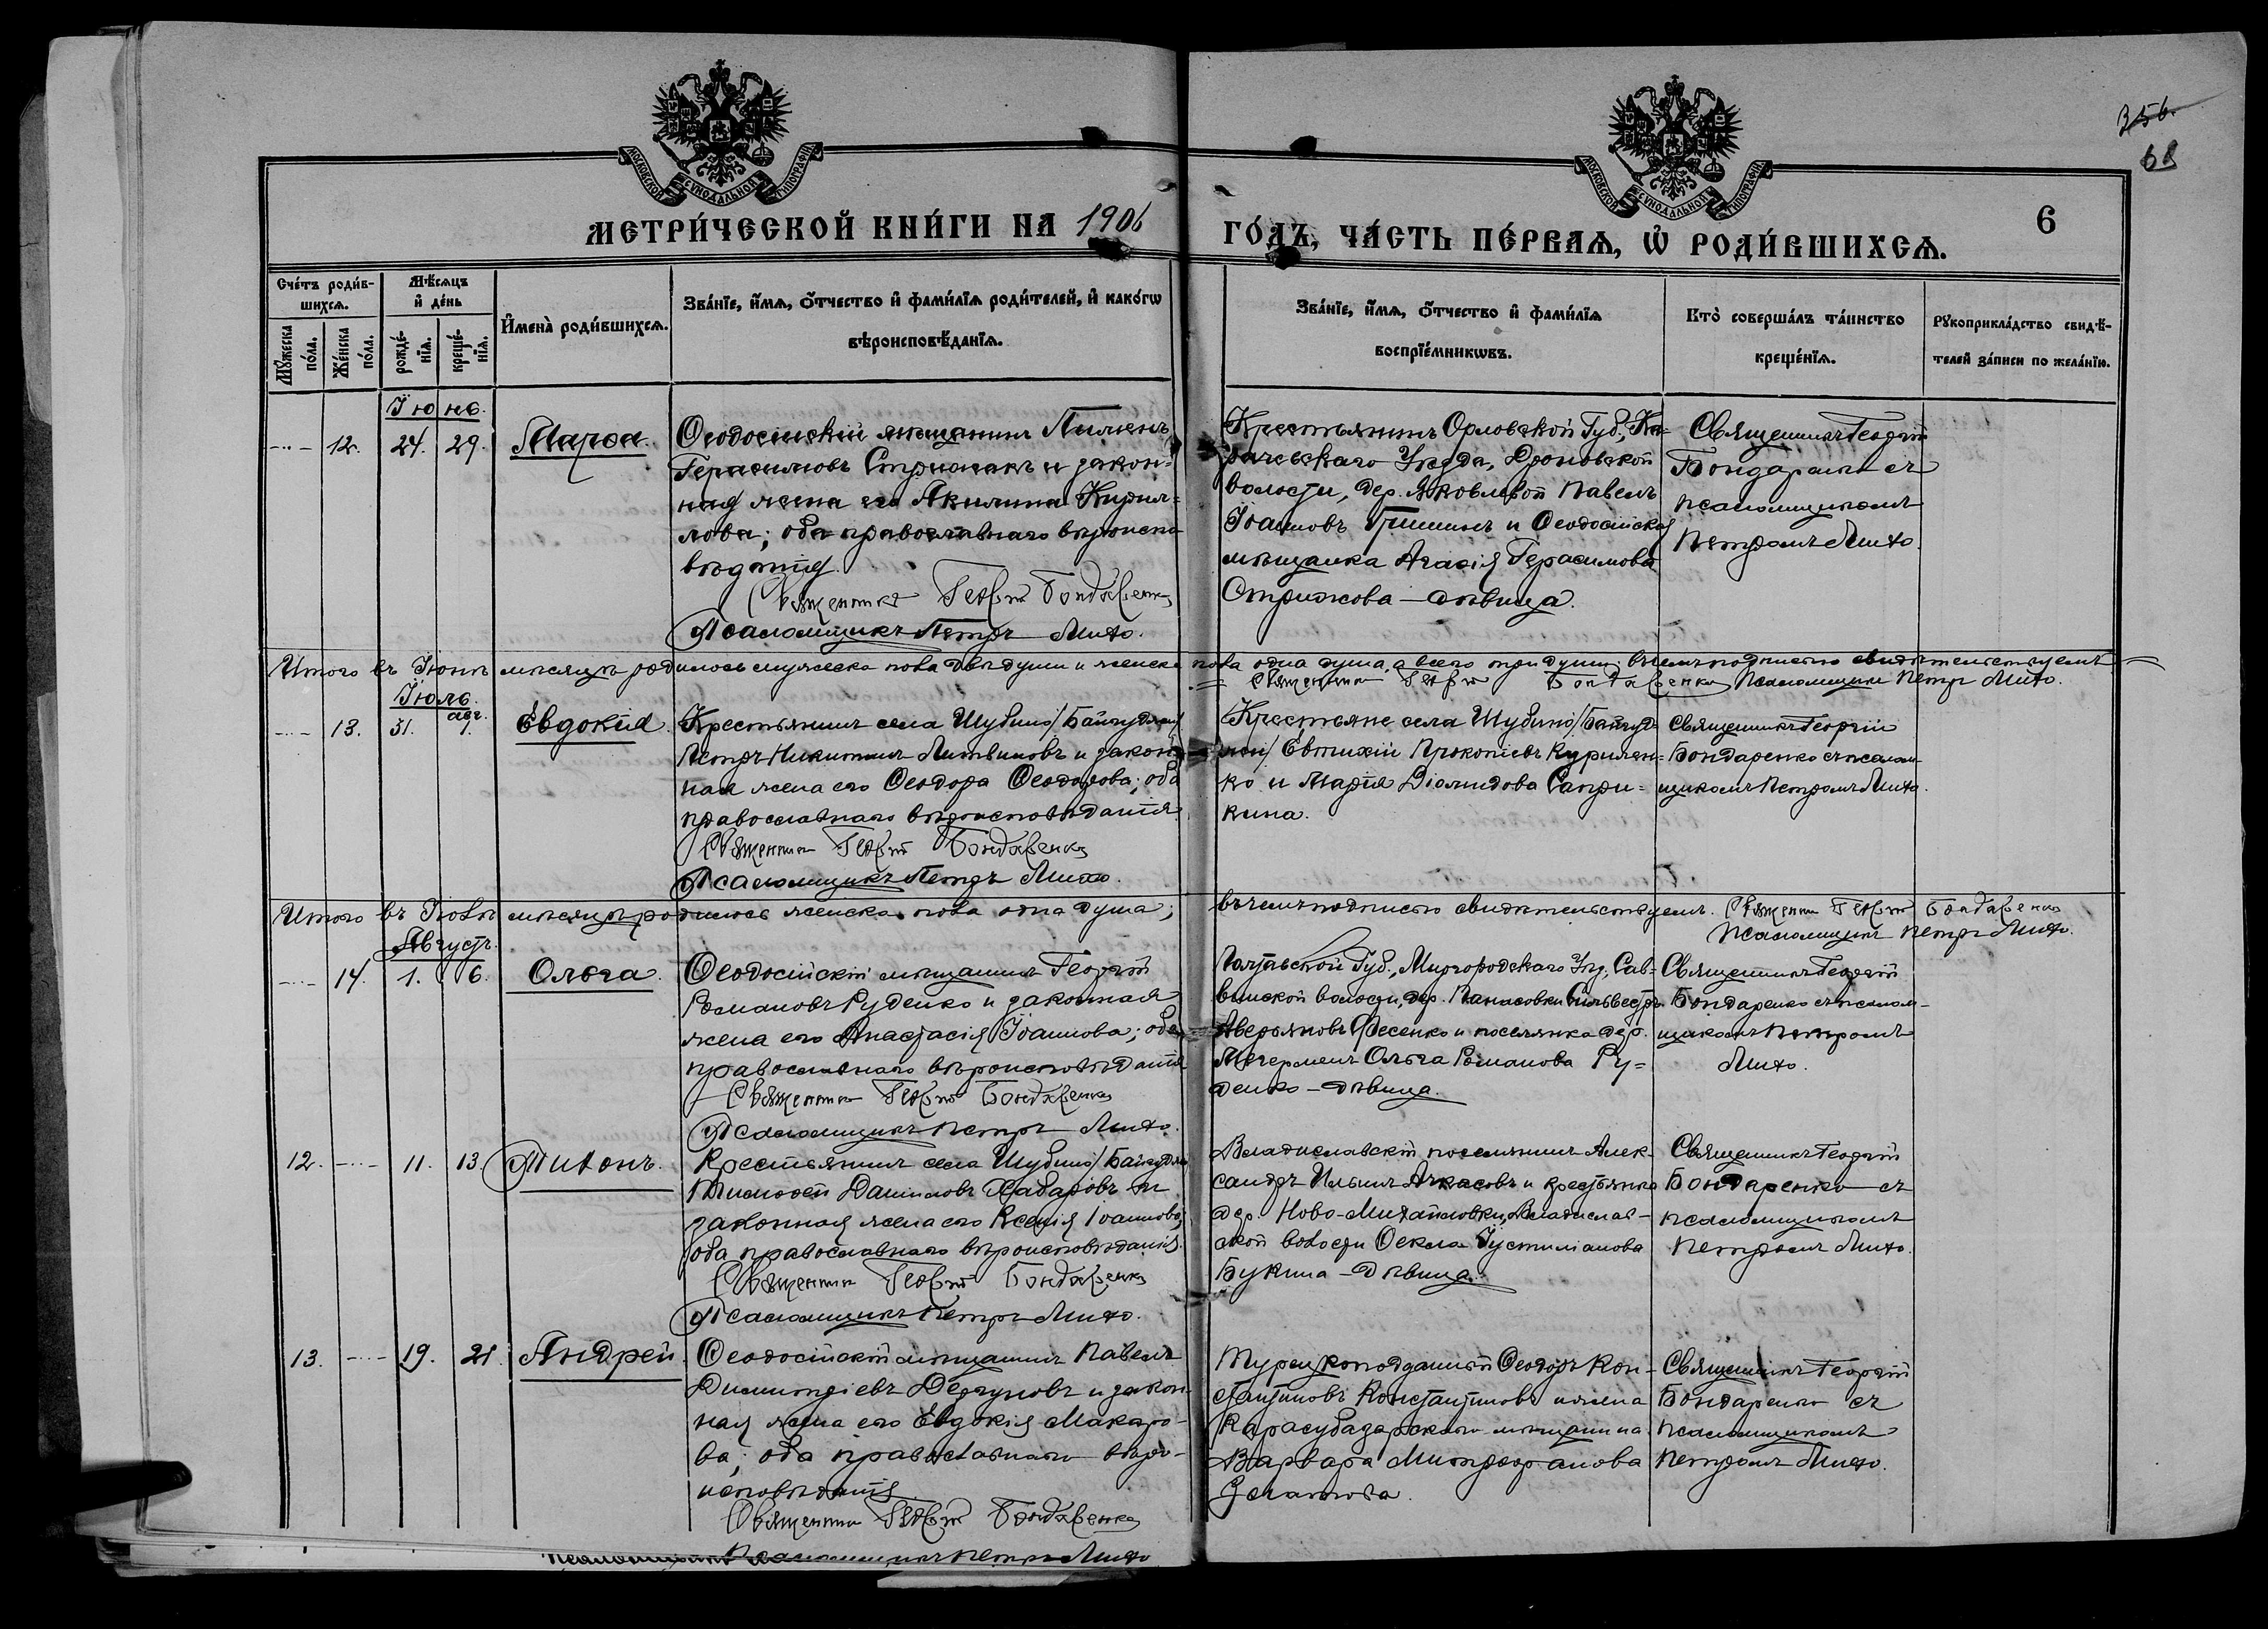 356.
68
МОСКОВСКОЙ СѴНОДАЛЬНОЙ ТИПОГРАФІИ
МОСКОВСКОЙ СѴНОДАЛЬНОЙ ТИПОГРАФІИ
МЕТРИ́ЧЕСКОЙ КНИ́ГИ НА 1906 ГО́ДЪ, ЧА́СТЬ ПЕ́РВАѦ, Ѡ҆ РОДИ́ВШИХСѦ.
6
Сче́тъ роди́в-
шихсѧ.
Мꙋ́жеска по́ла.
Же́нска по́ла.
Мѣ́сѧцъ
и҆ де́нь
рожде́-
нїѧ.
креще́-
нїѧ.
И҆мена̀ роди́вшихсѧ.
Зва́нїе, и҆́мѧ, ѻ҆́тчество и҆ фами́лїѧ роди́телей, и҆ како́гѡ
вѣроисповѣ́данїѧ.
Зва́нїе, и҆́мѧ, ѻ҆́тчество и҆ фами́лїѧ
воспрїе́мникѡвъ.
Кто̀ соверша́лъ та́инство
креще́нїѧ.
Рꙋкоприкла́дство свидѣ́-
телей за́писи по жела́нїю.
Іюнь.
12. 24. 29. Марѳа.
Ѳеодосійскій мѣщанинъ Пименъ
Герасимовъ Стрижакъ и закон-
ная жена его Акилина Кирил-
лова; оба православнаго вѣроиспо-
вѣданія.
Священникъ Георгій Бондаренко
Псаломщикъ Петръ Михо.
Крестьянинъ Орловской Губ., Ка-
рачевскаго Уѣзда, Дроновской
волости, дер. Яковлевой Павелъ
Іоанновъ Гришинъ и Ѳеодосійская
мѣщанка Агаѳія Герасимова
Стрижова - дѣвица.
Священникъ Георгій
Бондаренко съ
псаломщикомъ
Петромъ Михо.
Итого въ Іюнѣ мѣсяцѣ родилось мужеска пола двѣ души и женска пола одна душа, а всего три души; въ чемъ подписью свидѣтельствуемъ
Священникъ Георгій Бондаренко Псаломщикъ Петръ Михо.
Іюль.
13. 31. авг. 1. Евдокія.
Крестьянинъ села Шубино /Байгуджи/
Петръ Никитинъ Литвиновъ и закон-
ная жена его Ѳеодора Ѳеодорова; оба
православнаго вѣроисповѣданія.
Священникъ Георгій Бондаренко
Псаломщикъ Петръ Михо.
Крестьяне села Шубино /Байгуд-
жи/ Евтихій Прокопіевъ Курилен-
ко и Марія Діомидова Сапри-
кина.
Священникъ Георгій
Бондаренко съ псалом-
щикомъ Петромъ Михо.
Итого въ Іюлѣ мѣсяцѣ родилось женска пола одна душа; въ чемъ подписью свидѣтельствуемъ. Священникъ Георгій Бондаренко
Псаломщикъ Петръ Михо.
Августъ.
14. 1. 6. Ольга.
Ѳеодосійскій мѣщанинъ Георгій
Романовъ Руденко и законная
жена его Анастасія Іоаннова; оба
православнаго вѣроисповѣданія
Священникъ Георгій Бондаренко
Псаломщикъ Петръ Михо.
Полтавской Губ., Миргородскаго Уѣз., Сав-
винской волости, дер. Панасовки Сильвестръ
Аверьяновъ Фесенко и поселянка дер.
Мечерменъ Ольга Романова Ру-
денко - дѣвица.
Священникъ Георгій
Бондаренко съ псалом-
щикомъ Петромъ
Михо.
12. 11. 13. Тихонъ.
Крестьянинъ села Шубино /Байгуджи/
Тимоѳей Даниловъ Хабаровъ и
законная жена его Ксенія Іоаннова;
оба православнаго вѣроисповѣданія.
Священникъ Георгій Бондаренко
Псаломщикъ Петръ Михо.
Владиславскій поселянинъ Алек-
сандръ Ильинъ Ачкасовъ и крестьянка
дер. Ново-Михайловки, Владислав-
ской волости Ѳекла Іустиніанова
Букина - дѣвица.
Священникъ Георгій
Бондаренко съ
псаломщикомъ
Петромъ Михо.
13. 19. 21. Андрей.
Ѳеодосійскій мѣщанинъ Павелъ
Димитріевъ Дергуновъ и закон-
ная жена его Евдокія Макаро-
ва; оба православнаго вѣро-
исповѣданія.
Священникъ Георгій Бондаренко
Псаломщикъ Петръ Михо
Турецкоподданный Ѳеодоръ Кон-
стантиновъ Константиновъ и жена
Карасубазарскаго мѣщанина
Варвара Митрофанова
Священникъ Георгій
Бондаренко съ
псаломщикомъ
Петромъ Михо.